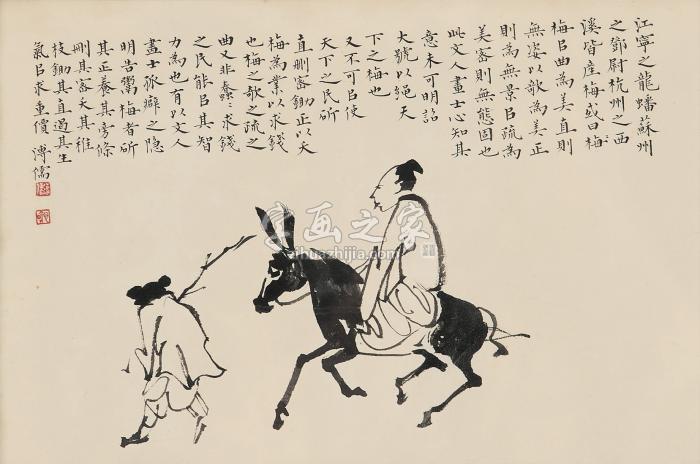 江寧之龍蟠蘇州
之鄧尉杭州之西
溪皆産梅或曰梅
梅㠯曲為美直則
無姿以欹為美正
則為無景㠯疏為
美密則無態固也
此文人畫士心知其
意未可明詔
大號以繩天
下之梅也
又不可㠯使
天下之民斫
直刪密鋤正以夭
梅為業以求錢
也梅之欹之疏之
曲又非蠢:求錢
之民能㠯其智
力為也有以文人
畫士孤癖之隱
明告鬻梅者斫
其正養其旁條
刪其密夭其稚
枝鋤其直遏其生
氣㠯求重價 溥儒
字画之家
zihuazhijia.com